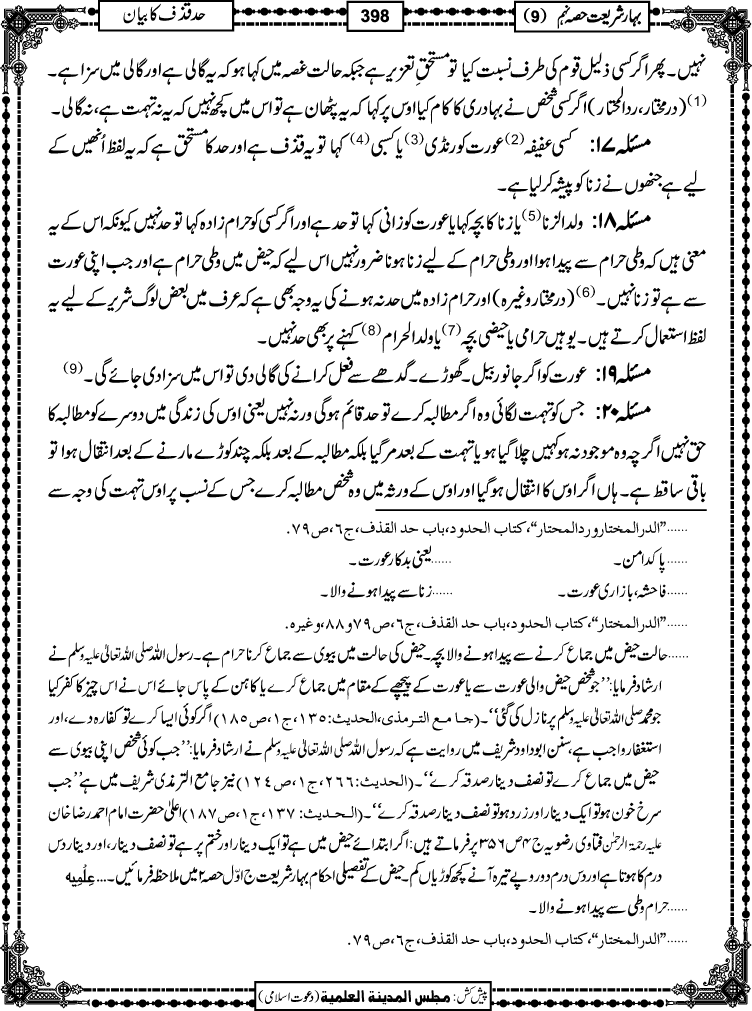 بہار شریعت حصہ نہم (9)
398
حد قذف کا بیان
نہیں۔ پھر اگر کسی ذلیل قوم کی طرف نسبت کیا تو مستحقِ تعزیر ہے جبکہ حالت غصہ میں کہا ہو کہ یہ گالی ہے اور گالی میں سزا ہے۔
(1) (درمختار، ردالمحتار) اگر کسی شخص نے بہادری کا کام کیا اوس پر کہا کہ یہ پٹھان ہے تو اس میں کچھ نہیں کہ یہ نہ تہمت ہے، نہ گالی۔
مسئلہ ۱۷: کسی عفیفہ(2) عورت کو رنڈی(3) یا کسبی(4) کہا تو یہ قذف ہے اور حد کا مستحق ہے کہ یہ لفظ اُنھیں کے
لیے ہے جنھوں نے زنا کو پیشہ کر لیا ہے۔
مسئلہ ۱۸: ولد الزنا(5) یا زنا کا بچہ کہا یا عورت کو زانی کہا تو حد ہے اور اگر کسی کو حرام زادہ کہا تو حد نہیں کیونکہ اس کے یہ
معنی ہیں کہ وطی حرام سے پیدا ہوا اور وطی حرام کے لیے زنا ہونا ضرور نہیں اس لیے کہ حیض میں وطی حرام ہے اور جب اپنی عورت
سے ہے تو زنا نہیں۔(6) (درمختار وغیرہ) اور حرام زادہ میں حد نہ ہونے کی یہ وجہ بھی ہے کہ عرف میں بعض لوگ شریر کے لیے یہ
لفظ استعمال کرتے ہیں۔ یوہیں حرامی یا حیضی بچہ(7) یا ولد الحرام(8) کہنے پر بھی حد نہیں۔
مسئلہ ۱۹: عورت کو اگر جانور بیل۔ گھوڑے۔ گدھے سے فعل کرانے کی گالی دی تو اس میں سزا دی جائے گی۔(9)
مسئلہ ۲۰: جس کو تہمت لگائی وہ اگر مطالبہ کرے تو حد قائم ہوگی ورنہ نہیں یعنی اوس کی زندگی میں دوسرے کو مطالبہ کا
حق نہیں اگرچہ وہ موجود نہ ہو کہیں چلا گیا ہو یا تہمت کے بعد مر گیا بلکہ مطالبہ کے بعد بلکہ چند کوڑے مارنے کے بعد انتقال ہوا تو
باقی ساقط ہے۔ ہاں اگر اوس کا انتقال ہوگیا اور اوس کے ورثہ میں وہ شخص مطالبہ کرے جس کے نسب پر اوس تہمت کی وجہ سے
......"الدرالمختار وردالمحتار"، کتاب الحدود، باب حد القذف، ج٦، ص۷۹.
......پاکدامن۔ ......یعنی بدکار عورت۔
......فاحشہ، بازاری عورت۔ ......زنا سے پیدا ہونے والا۔
......"الدرالمختار"، کتاب الحدود، باب حد القذف، ج٦، ص۷۹و۸۸، وغیرہ.
......حالت حیض میں جماع کرنے سے پیدا ہونے والا بچہ۔ حیض کی حالت میں بیوی سے جماع کرنا حرام ہے۔ رسول اللہ صلی اللہ تعالیٰ علیہ وسلم نے
ارشاد فرمایا: "جو شخص حیض والی عورت سے یا عورت کے پیچھے کے مقام میں جماع کرے یا کاہن کے پاس جائے اس نے اس چیز کا کفر کیا
جو محمد صلی اللہ تعالیٰ علیہ وسلم پر نازل کی گئی"۔ (جامع الترمذی، الحدیث: ۱۳۵، ج۱، ص۱۸۵) اگر کوئی ایسا کرے تو کفارہ دے، اور
استغفار واجب ہے، سنن ابوداود شریف میں روایت ہے کہ رسول اللہ صلی اللہ تعالیٰ علیہ وسلم نے ارشاد فرمایا: "جب کوئی شخص اپنی بیوی سے
حیض میں جماع کرے تو نصف دینار صدقہ کرے"۔ (الحدیث: ۲٦٦، ج۱، ص۱۲٤) نیز جامع الترمذی شریف میں ہے "جب
سرخ خون ہو تو ایک دینار اور زرد ہو تو نصف دینار صدقہ کرے"۔ (الحدیث: ۱۳۷، ج۱، ص۱۸۷) اعلیٰ حضرت امام احمد رضا خان
علیہ رحمۃ الرحمٰن فتاوی رضویہ ج ۴ ص ۳۵۶ پر فرماتے ہیں: اگر ابتدائے حیض میں ہے تو ایک دینار اور ختم پر ہے تو نصف دینار، اور دینار دس
درم کا ہوتا ہے اور دس درم دو روپے تیرہ آنے کچھ کوڑیاں کم۔ حیض کے تفصیلی احکام بہار شریعت ج اوّل حصہ ۲ میں ملاحظہ فرمائیں۔... عِلْمِیه
......حرام وطی سے پیدا ہونے والا۔
......"الدرالمختار"، کتاب الحدود، باب حد القذف، ج٦، ص۷۹.
پیش کش: مجلس المدینة العلمیة (دعوت اسلامی)